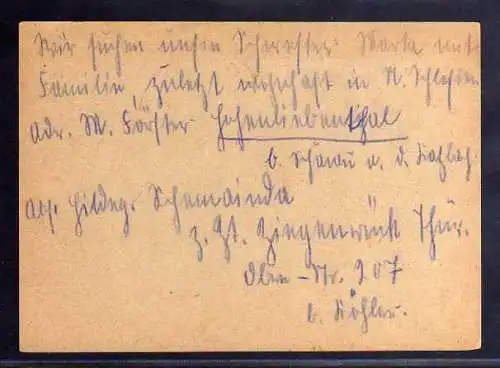 Wir suchen unsere Schwester Marta mit
Familie, zuletzt wohnhaft in N. Schlesien
Adr. M. Förster Hohenliebenthal
b. Schönau a. d. Katzbach
Abs. Hildeg. Schemainda
z. Zt. Ziegenrück Thür.
Obere-Str. 207
b. Köhler.